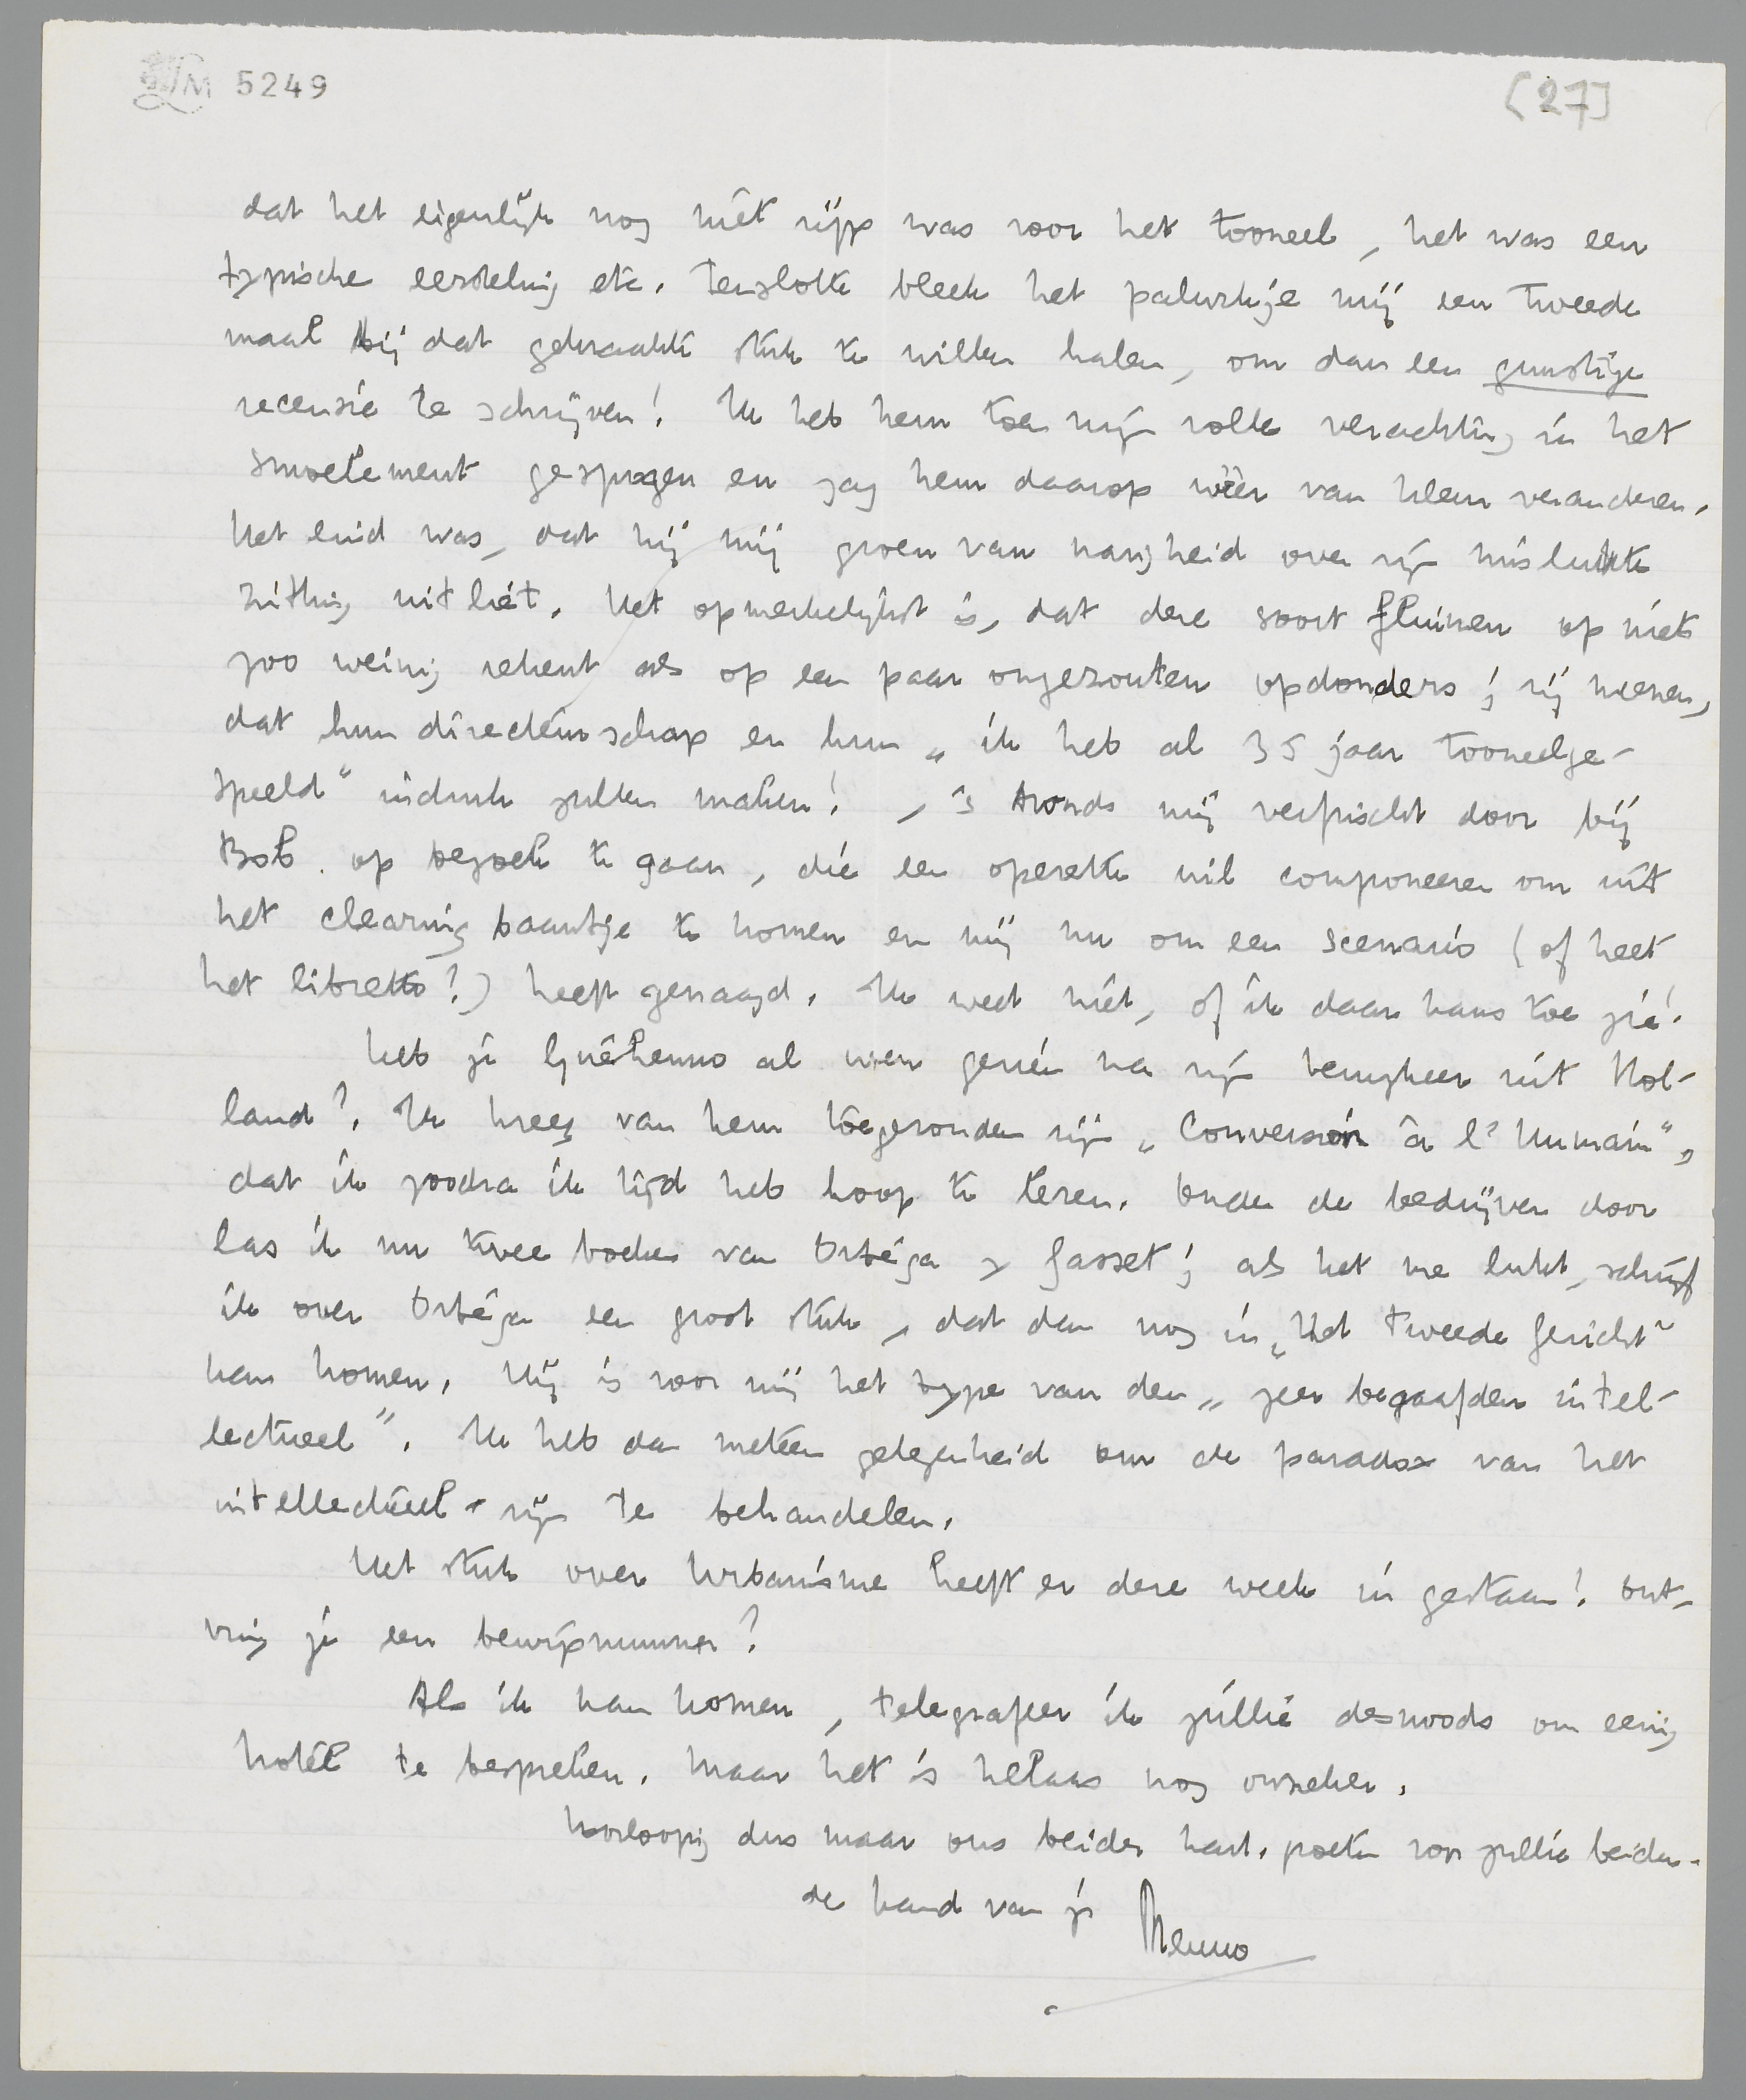 LM 5249
(27]
dat het eigenlijk nog niet rijp was voor het tooneel, het was een
typische eersteling etc. Tenslotte bleek het paljurkje mij een tweede
maal bij dat gekraakte stuk te willen halen, om dan een gunstige
recensie te schrijven! Ik heb hem toen mijn volle verachting in het
smoelement gespogen en zag hem daarop weer van kleur veranderen.
Het eind was, dat hij mij groen van narigheid over zijn mislukte
zitting uitliet. Het opmerkelijkst is, dat deze soort fluimen op niets
zoo weinig rekent als op een paar ongezouten opdonders; zij meenen,
dat hun directeurschap en hun „ik heb al 35 jaar tooneelge-
speeld" indruk zullen maken! , 's Avonds mij verfrischt door bij
Bob op bezoek te gaan, die een operette wil componeeren om uit
het clearing baantje te komen en mij nu om een scenario (of heet
het libretto?) heeft gevraagd. Ik weet niet, of ik daar kans toe zie!
Heb je Guéhenno al weer gezien na zijn terugkeer uit Hol-
land? Ik kreeg van hem toegezonden zijn „Conversion à l'Humain",
dat ik zoodra ik tijd heb hoop te lezen. Onder de bedrijven door
las ik nu twee boeken van Ortéga y Gasset; als het me lukt, schrijf
ik over Ortéga een groot stuk, dat dan nog in „Het Tweede Gezicht"
kan komen. Hij is voor mij het type van den „zeer begaafden intel-
lectueel". Ik heb dan meteen gelegenheid om de paradox van het
intellectueel-zijn te behandelen.
Het stuk over Urbanisme heeft er deze week in gestaan! Ont-
ving je een bewijsnummer?
Als ik kan komen, telegrafeer ik jullie desnoods om eenig
hotel te bespreken. Maar het is helaas nog onzeker.
Voorloopig dus maar ons beider hart. groeten voor jullie beiden.
de hand van je Menno